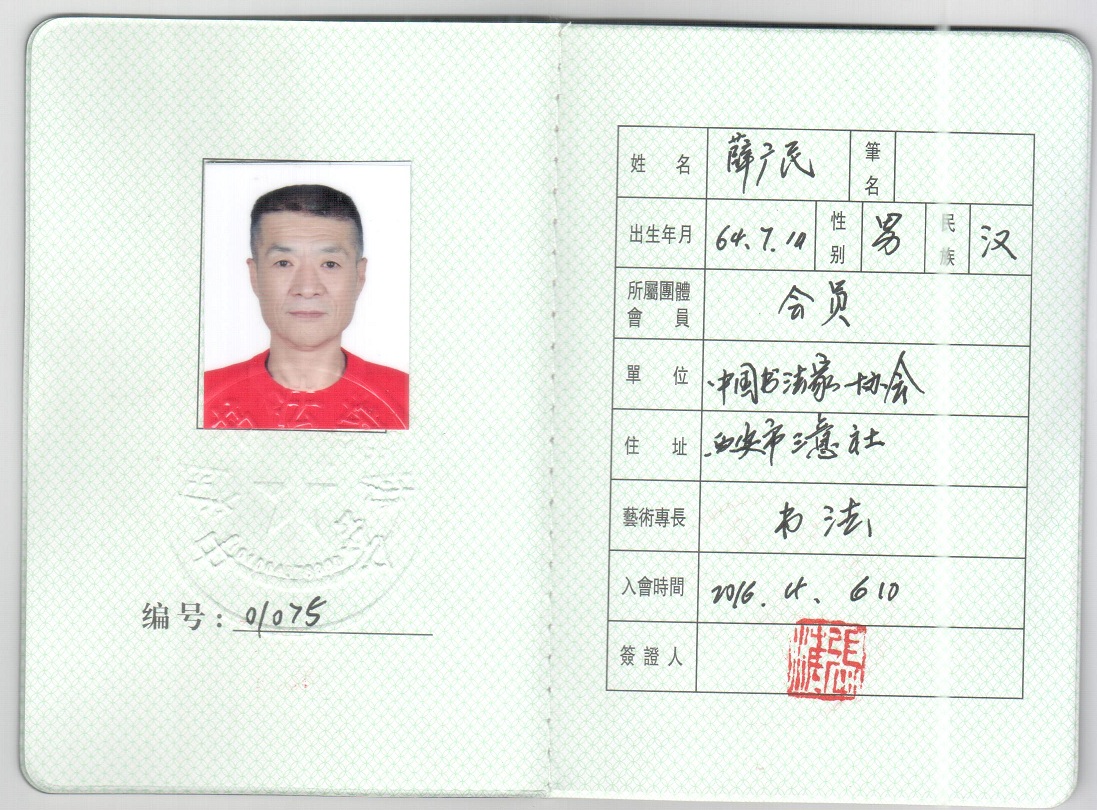 编号：01075
姓名 薛广民 筆名
出生年月 64.7.19 性别 男 民族 汉
所屬團體會員 会员
單位 中国书法家协会
住址 西安市三意社
藝術專長 书法
入會時間 2016.4.610
簽證人